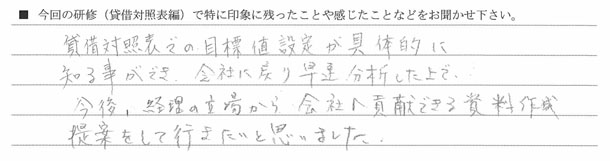 ■ 今回の研修（貸借対照表編）で特に印象に残ったことや感じたことなどをお聞かせ下さい。
貸借対照表での目標値設定が具体的に
知る事ができ、会社に戻り早速分析した上で、
今後、経理の立場から会社へ貢献できる資料作成
提案をして行きたいと思いました。